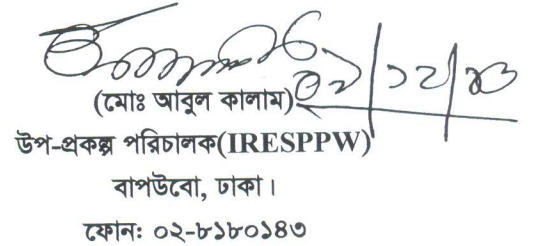 ০২/১২/১৩
(মোঃ আবুল কালাম)
উপ-প্রকল্প পরিচালক(IRESPPW)
বাপউবো, ঢাকা।
ফোনঃ ০২-৮১৮০১৪৩